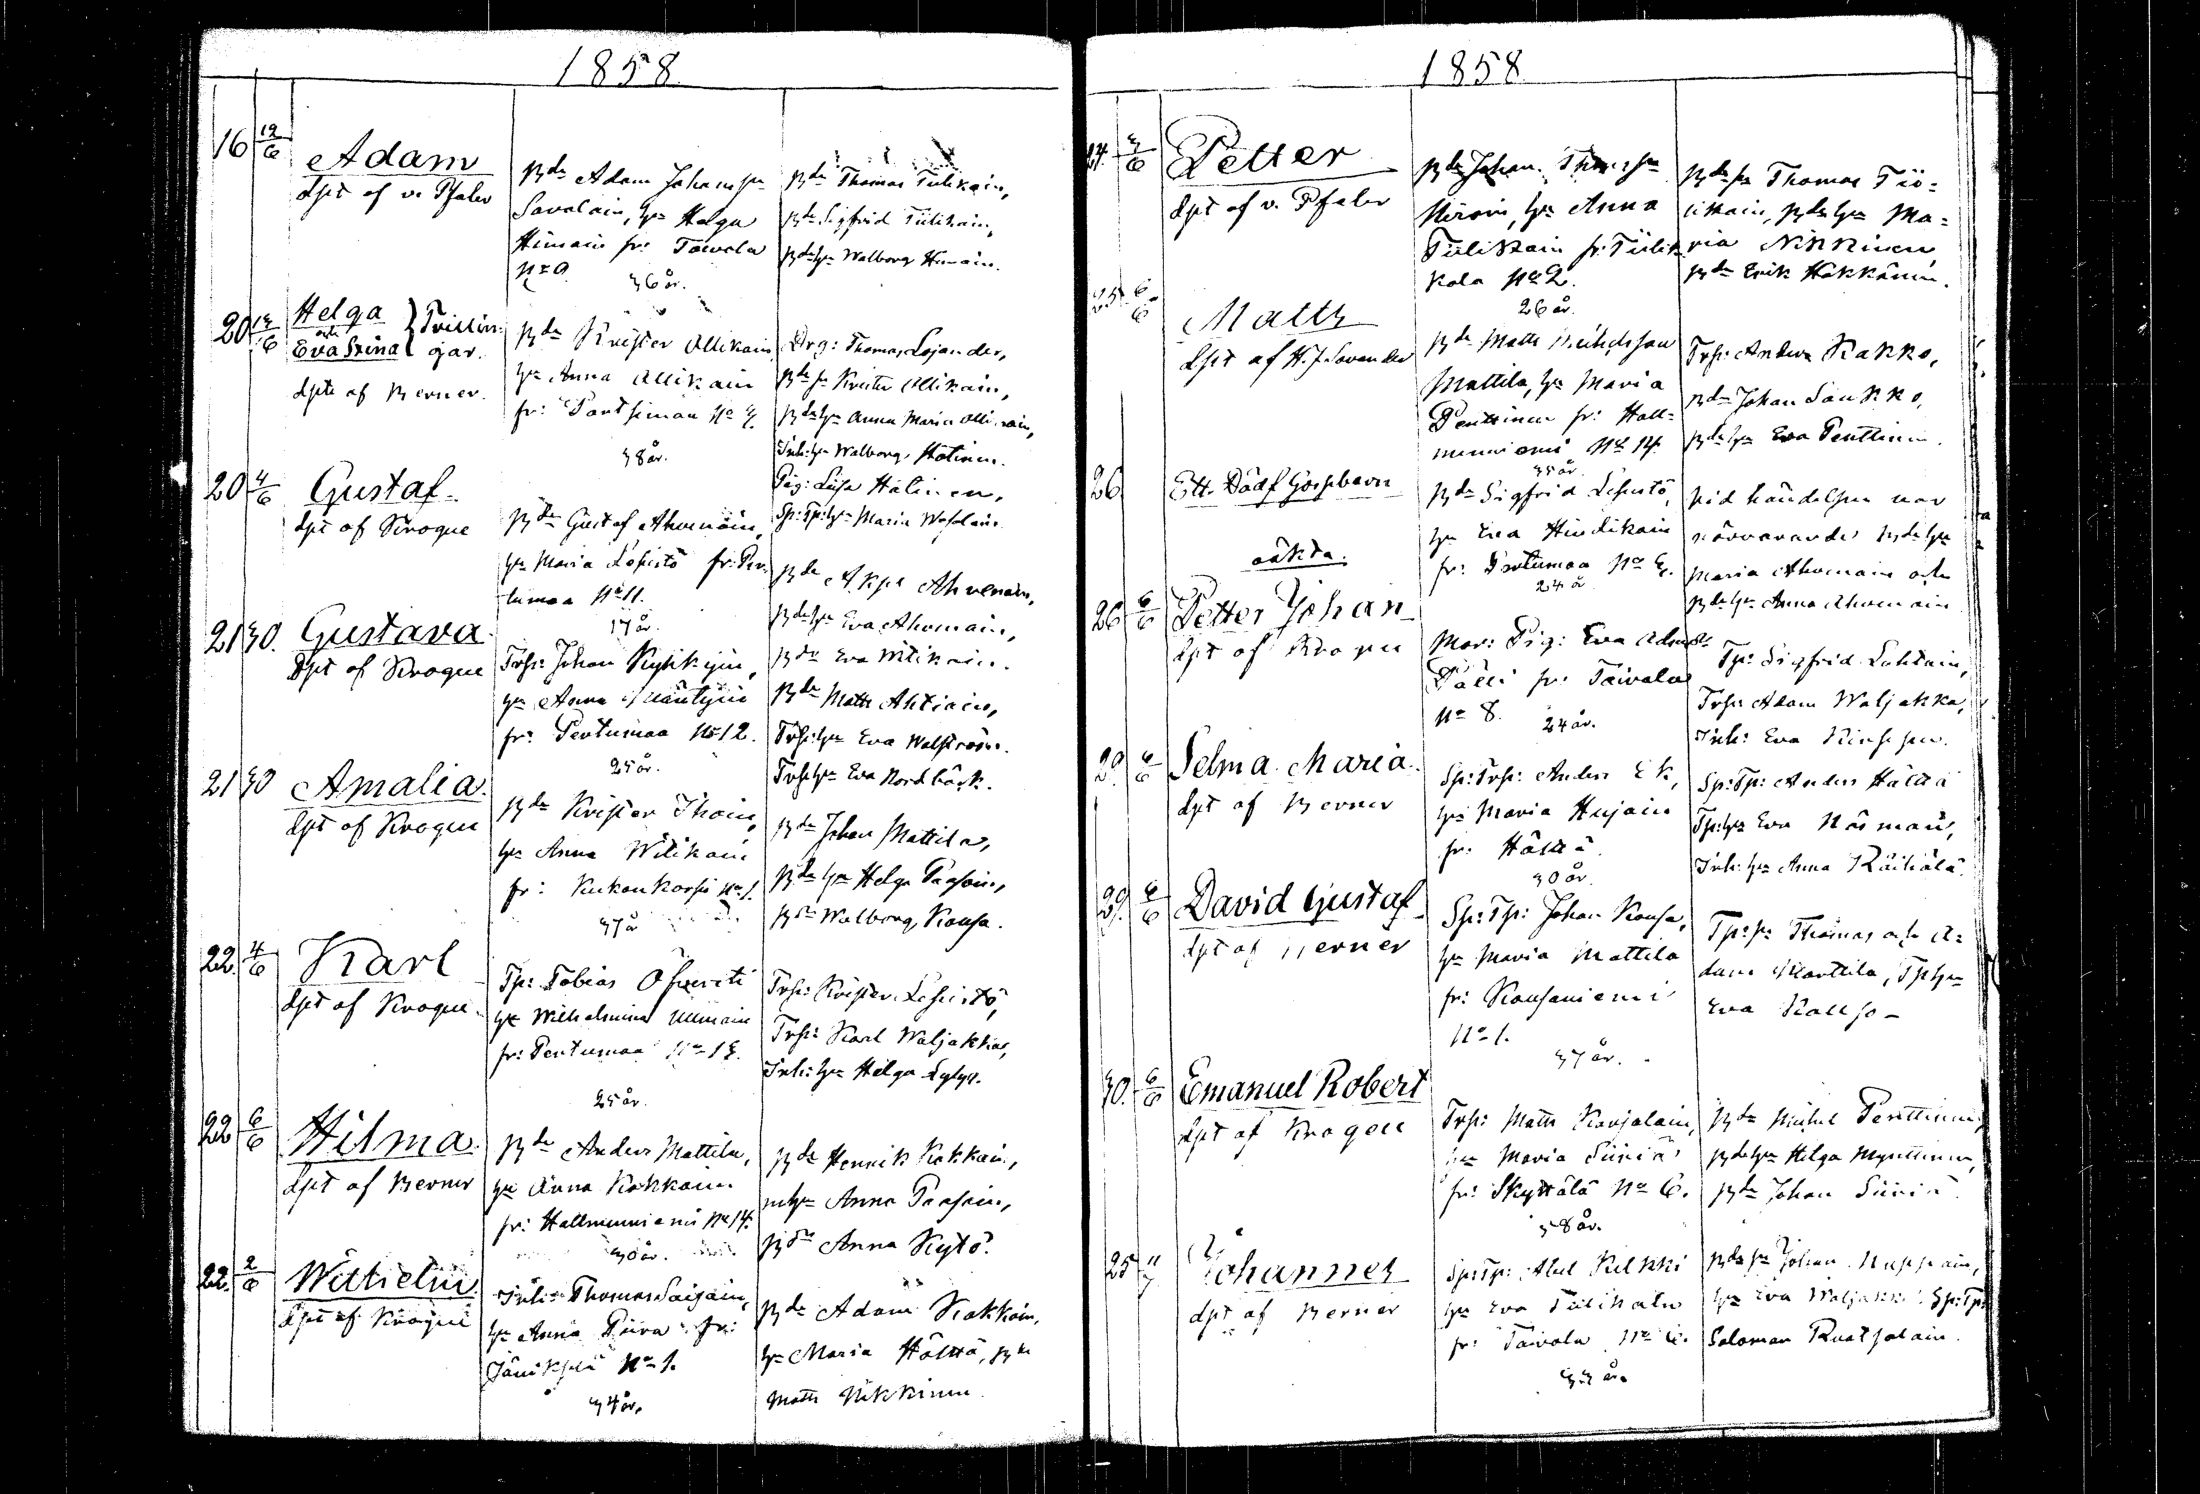 1858
16 12/6
Adam
dpt af v. Pfaler
Bdn Adam Johansson
Savolain, hu Helga
Himain fr: Taivola
No 9.
36 år.
Bdn Thomas Tulikain,
Bdn Sigfrid Tiilikain,
Bde hu Walborg Himain.
20 13/6
Helga
och
Eva Stina
Tvillin-
gar.
dpte af Berner.
Bdn Krister Ollikain
hu Anna Ollikain
fr: Partsimaa No
38 år.
Drg: Thomas Lojander,
Bde sn Krister Ollikain,
Bde hu Anna Maria Ollikain,
Inh: hu Walborg Hatinen.
Pig: Lisa Halinen,
Sp: Tp: hu Maria
20 4/6
Gustaf.
dpt af Krogue
Bdn Gustaf Ahvenain,
hu Maria Lopistö fr: Per-
tumaa No 11.
17 år.
Bdn Ahvenain,
Bde hu Eva Ahvenain,
Bdn Eva Witikain.
21 30.
Gustava.
dpt af Krogue
Trp: Johan
hu Anna Mäntyin
fr: Pertumaa No 12.
25 år.
Bdn Matts Ahtiain,
Trp: hu Eva Walström.
Trp: hu Eva Nordbäck.
21 30
Amalia.
dpt af Krogue
Bdn Krister Ihain,
hu Anna Witikain
fr: Kukonkorpi No 1.
37 år
Bdn Johan Mattila,
Bde hu Helga Paasoin,
Bdn Walborg Kousa.
22. 4/6
Karl
dpt af Krogue.
Tp: Tobias
hu Wilhelmina Ullmain
fr: Pertumaa No 13.
25 år.
Trp: Krister Lopistö,
Trp: Karl Waljakka,
Inh: hu Helga Lyly.
22 6/6
Hilma.
dpt af Berner
Bdn Anders Mattila,
hu Anna Kokkain
fr: Hallmenniemi No 14.
30 år.
Bdn Henrik Kokkain,
hu Anna Paasoin,
Bdn Anna Kytö.
22. 2/6
Wilhelm.
dpt af Krogue
Inh: Thomas Saijain,
hu Anna Piira fr:
No 1.
34 år.
Bdn Adam Kokkain,
hu Maria Hölttä, Bdn
Matts Nikkinen.
1858
24. 3/6
Petter
dpt af v. Pfaler
Bdn Johan Thomasson
Hirvoin, hu Anna
Tiilikain fr: Tiilik-
kala No 2.
26 år.
Bde sn Thomas Tii-
likain, Bde hu Ma-
ria Nikkinen,
Bdn Erik Häkkänin.
25 6/6
Matts
dpt af H. J. Savander
Bdn Matts Michelsson
Mattila, hu Maria
Penttinen fr: Hall-
menniemi No 14.
35 år.
Trp: Anders Kakko,
Bdn Johan Saukko,
Bde hu Eva Penttinen.
26
Ett Dödf Gossebarn
Bdn Sigfrid Lopistö,
hu Eva Hindikain
fr: Pertumaa No
24 år
Vid händelsen var
närvarande Bde hu
Maria Ahvenain och
Bde hu Anna Ahvenain
oäkta.
26 6/6
Petter Johan
dpt af Krogue
Mor: Pig: Eva Adamsdr
Pälli fr: Taivola
No 8. 24 år.
Tp: Sigfrid Lahtain,
Trp: Adam Waljakka,
Inh: Eva
29. 6/6
Selma Maria.
dpt af Berner
Sp: Trp: Anders Ek,
hu Maria Hujain
fr: Hölttä
30 år.
Sp: Tp: Anders Hölttä
Tp: hu Eva Näsman,
Inh: hu Anna Räihälä.
29. 6/6
David Gustaf
dpt af Berner
Sp: Tp: Johan Kousa,
hu Maria Mattila
fr: Kousaniemi
No 1.
37 år.
Tp: sn Thomas och A-
dam Marttila, Tp hu
Eva Kouso
30. 6/6
Emanuel Robert
dpt af Krogue
Trp: Matts Karjalain,
hu Maria Siiriä
fr: Skyttälä No 6.
38 år.
Bdn Michel Penttinen,
Bde hu Helga Mynttinen,
Bdn Johan Siiriä.
25 11/7
Johannes
dpt af Berner
Sp: Tp: Abel Kilkki
hu Eva Tiilikain
fr: Taivola No 6.
33 år.
Bde sn Johan
hu Eva Waljakka. Sp: Tp:
Salomon Ruatsalain.